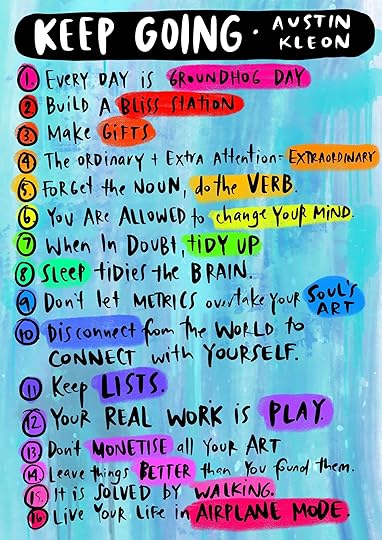 KEEP GOING · AUSTIN KLEON
1. EVERY DAY IS GROUNDHOG DAY
2. BUILD A BLISS STATION
3. MAKE GIFTS
4. The ORDINARY + EXTRA ATTENTION = EXTRAORDINARY
5. FORGET the NOUN, do the VERB.
6. YOU ARE ALLOWED to change YOUR MIND.
7. WHEN IN DOUBT, tIDY UP
8. SLEEP tidies the BRAIN.
9. DON'T let METRICS overtake YOUR SOUL'S ART
10. DISconnect from the WORLD to
CONNECT with YOURSELF.
11. Keep LISTS.
12. YOUR REAL WORK is PLAY.
13. DON'T MONETISE all YOUR ART
14. Leave things BETTER than YOU found them.
15. It is SOLVED BY WALKING.
16. LIVE YOUR LIFE in AIRPLANE MODE.